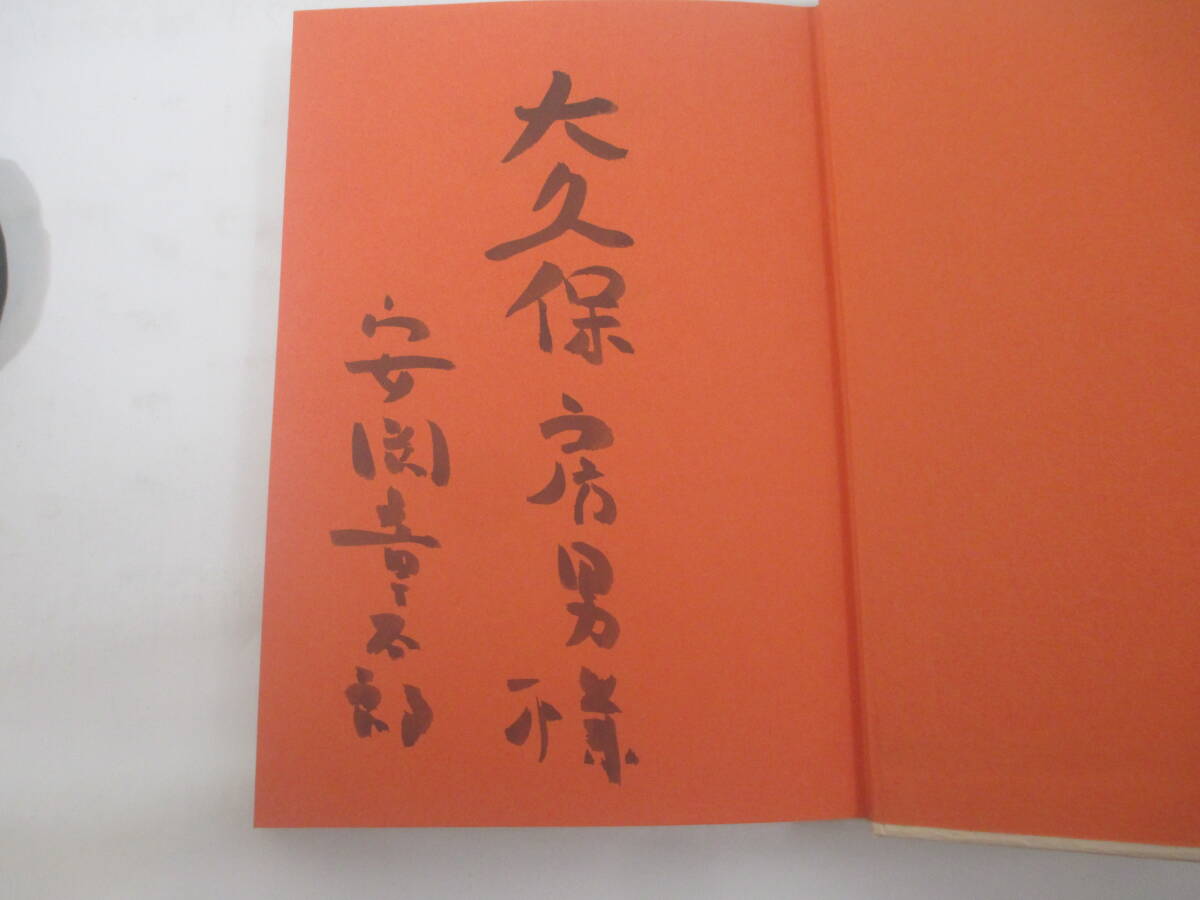 大久保房男様
安岡章太郎